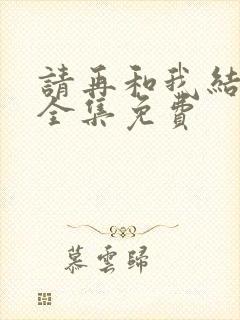 請再和我結
全集免費
慕雲歸